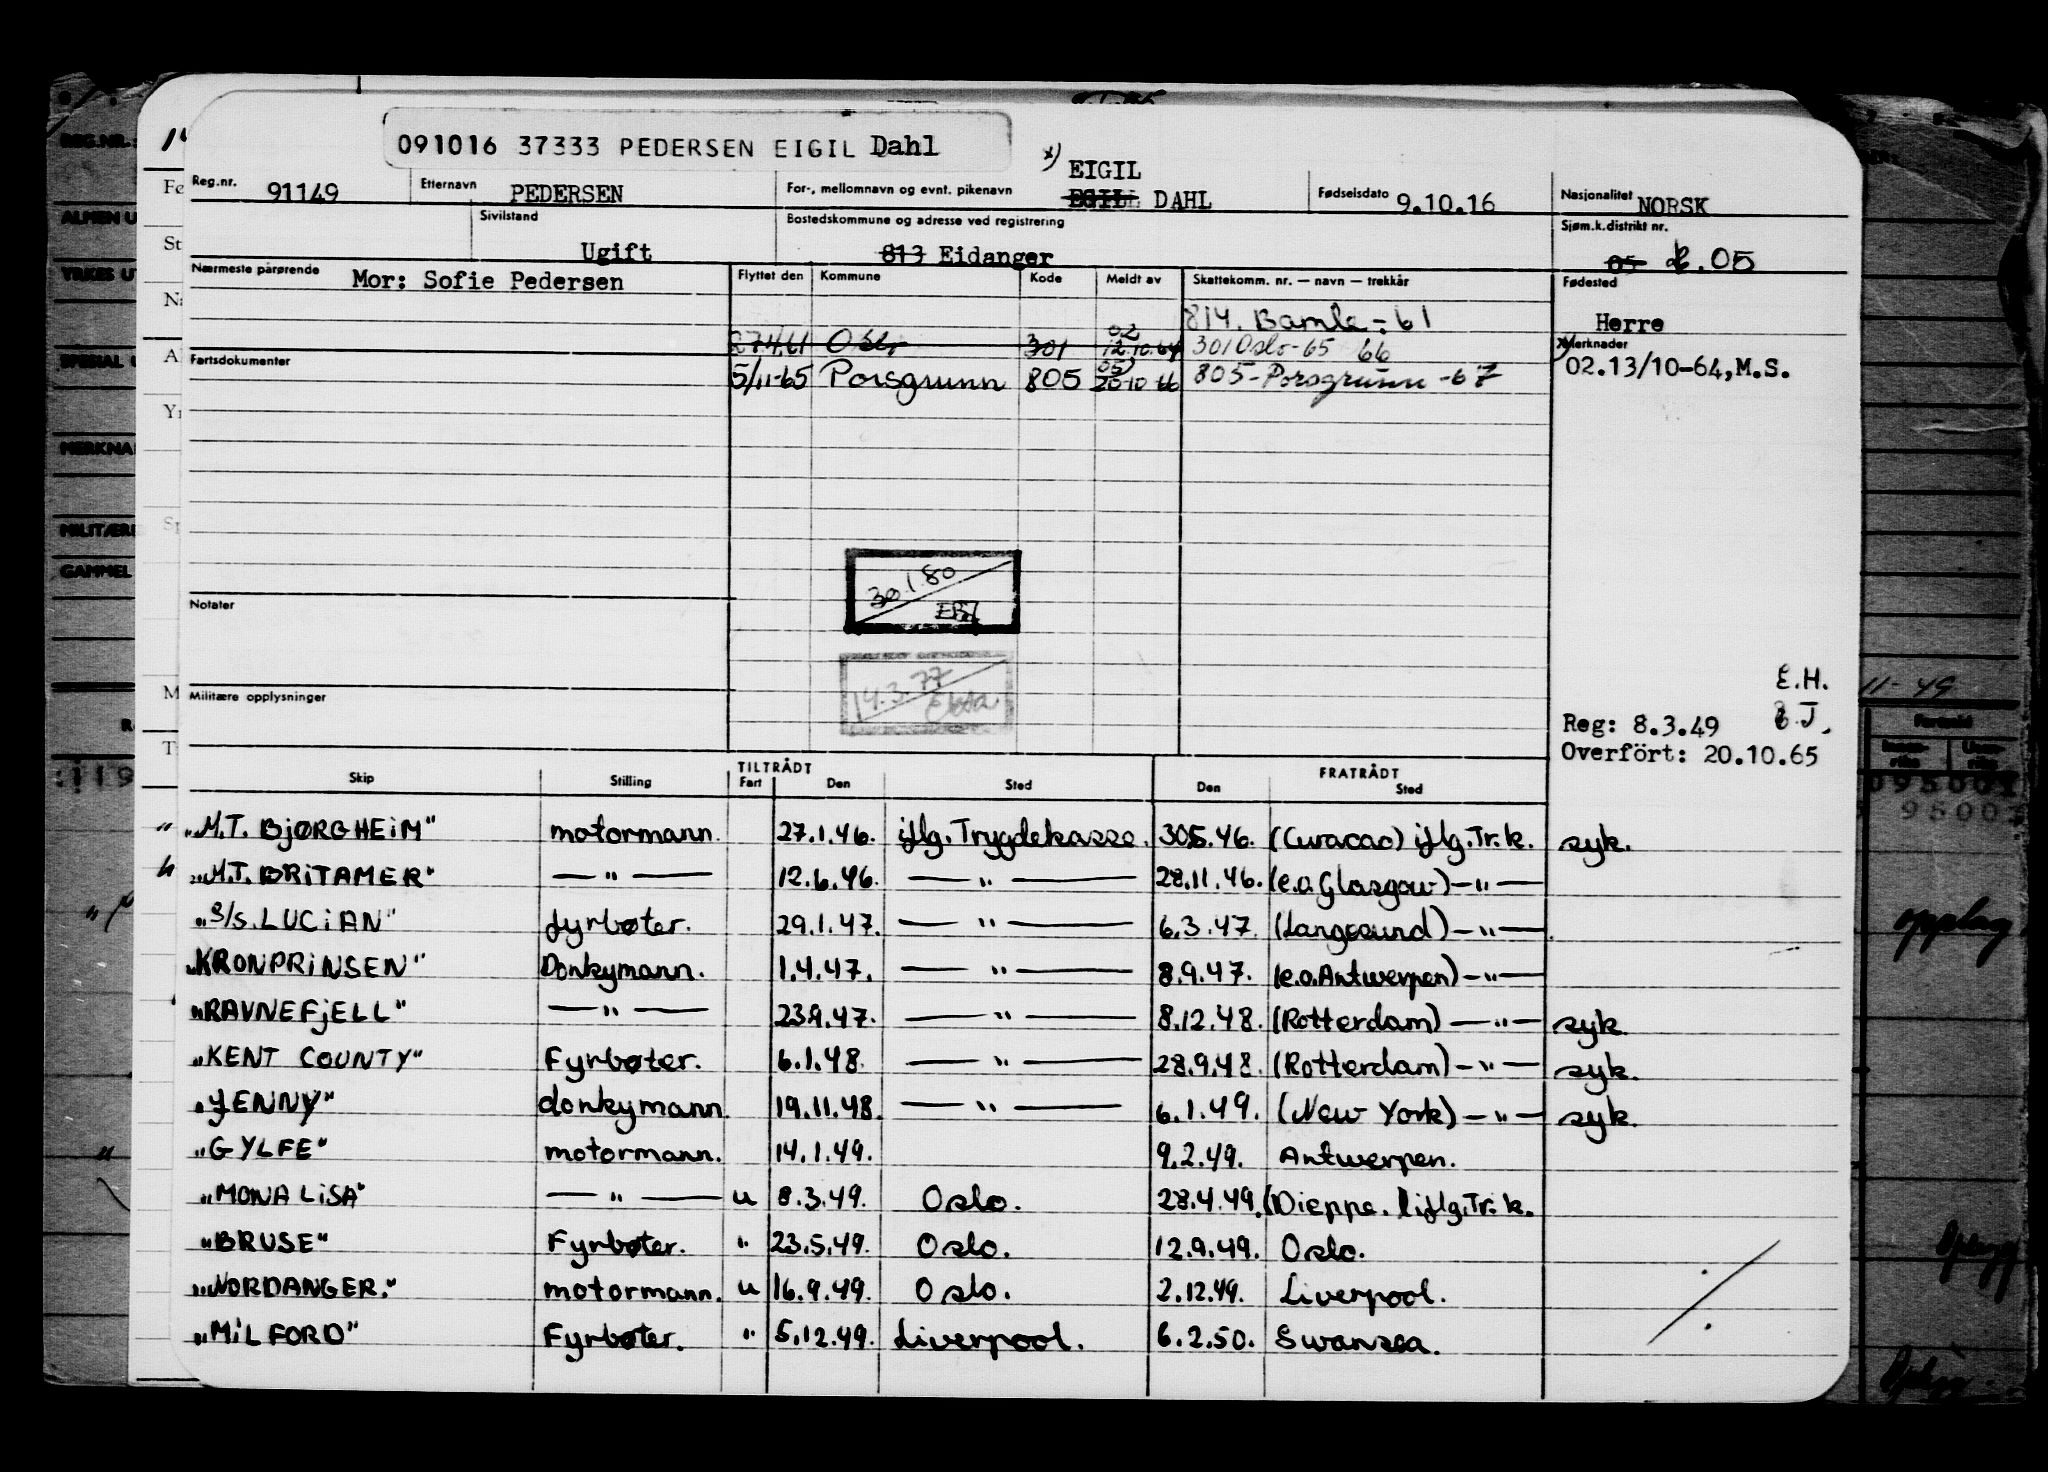 091016 37333 PEDERSEN EIGIL Dahl
Reg.nr. 91149 Etternavn PEDERSEN For-, mellomnavn og evnt. pikenavn x) EIGIL EGIL DAHL Fødselsdato 9.10.16 Nasjonalitet NORSK
Sivilstand Ugift Bostedskommune og adresse ved registrering 813 Eidanger Sjøm.k.distrikt nr. 05 .05
Nærmeste pårørende Mor: Sofie Pedersen Flyttet den Kommune Kode Meldt av Skattekomm. nr. — navn — trekkår Fødested
814. Bamle - 61 Herre
Oslo 301 02 12.10.64 301 Oslo-65 66 x) Merknader
Fartsdokumenter 5/11-65 Porsgrunn 805 05) 20.10 66 805-Porsgrunn -67 02.13/10-64,M.S.
30.1.80
Notater
14.3.77
Militære opplysninger
E.H.
Reg: 8.3.49 J.
Overfört: 20.10.65
Skip Stilling TILTRÅDT Fart Den Sted FRATRÅDT Den Sted
"M.T. BJØRGHEIM" motormann. 27.1.46. iflg. Trygdekasse. 30.5.46. (Curacao) iflg. Tr.k. syk.
"M.T. BRITAMER" — " — 12.6.46. — " — 28.11.46. (e.o. Glasgow) — " —
"S/S. LUCIAN" fyrbøter. 29.1.47. — " — 6.3.47. (Langesund) — " —
"KRONPRINSEN" Donkymann. 1.4.47. — " — 8.9.47. (e.o. Antwerpen) — " —
"RAVNEFJELL" — " — 23.9.47. — " — 8.12.48. (Rotterdam) — " — syk.
"KENT COUNTY" Fyrbøter. 6.1.48. — " — 28.9.48. (Rotterdam) — " — syk.
"JENNY" donkymann. 19.11.48. — " — 6.1.49. (New York) — " — syk.
"GYLFE" motormann. 14.1.49. 9.2.49. Antwerpen.
"MONA LISA" — " — u 8.3.49. Oslo. 28.4.49. (Dieppe.) iflg. Tr.k.
"BRUSE" Fyrbøter. " 23.5.49. Oslo. 12.9.49. Oslo.
"NORDANGER." motormann. u 16.9.49. Oslo. 2.12.49. Liverpool.
"MILFORD" Fyrbøter. " 5.12.49. Liverpool. 6.2.50. Swansea.